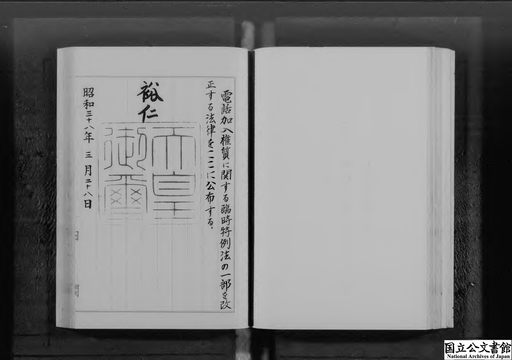 電話加入権質に関する臨時特例法の一部を改
正する法律をここに公布する。
裕仁
天皇
御璽
昭和三十八年三月二十八日
国立公文書館
National Archives of Japan